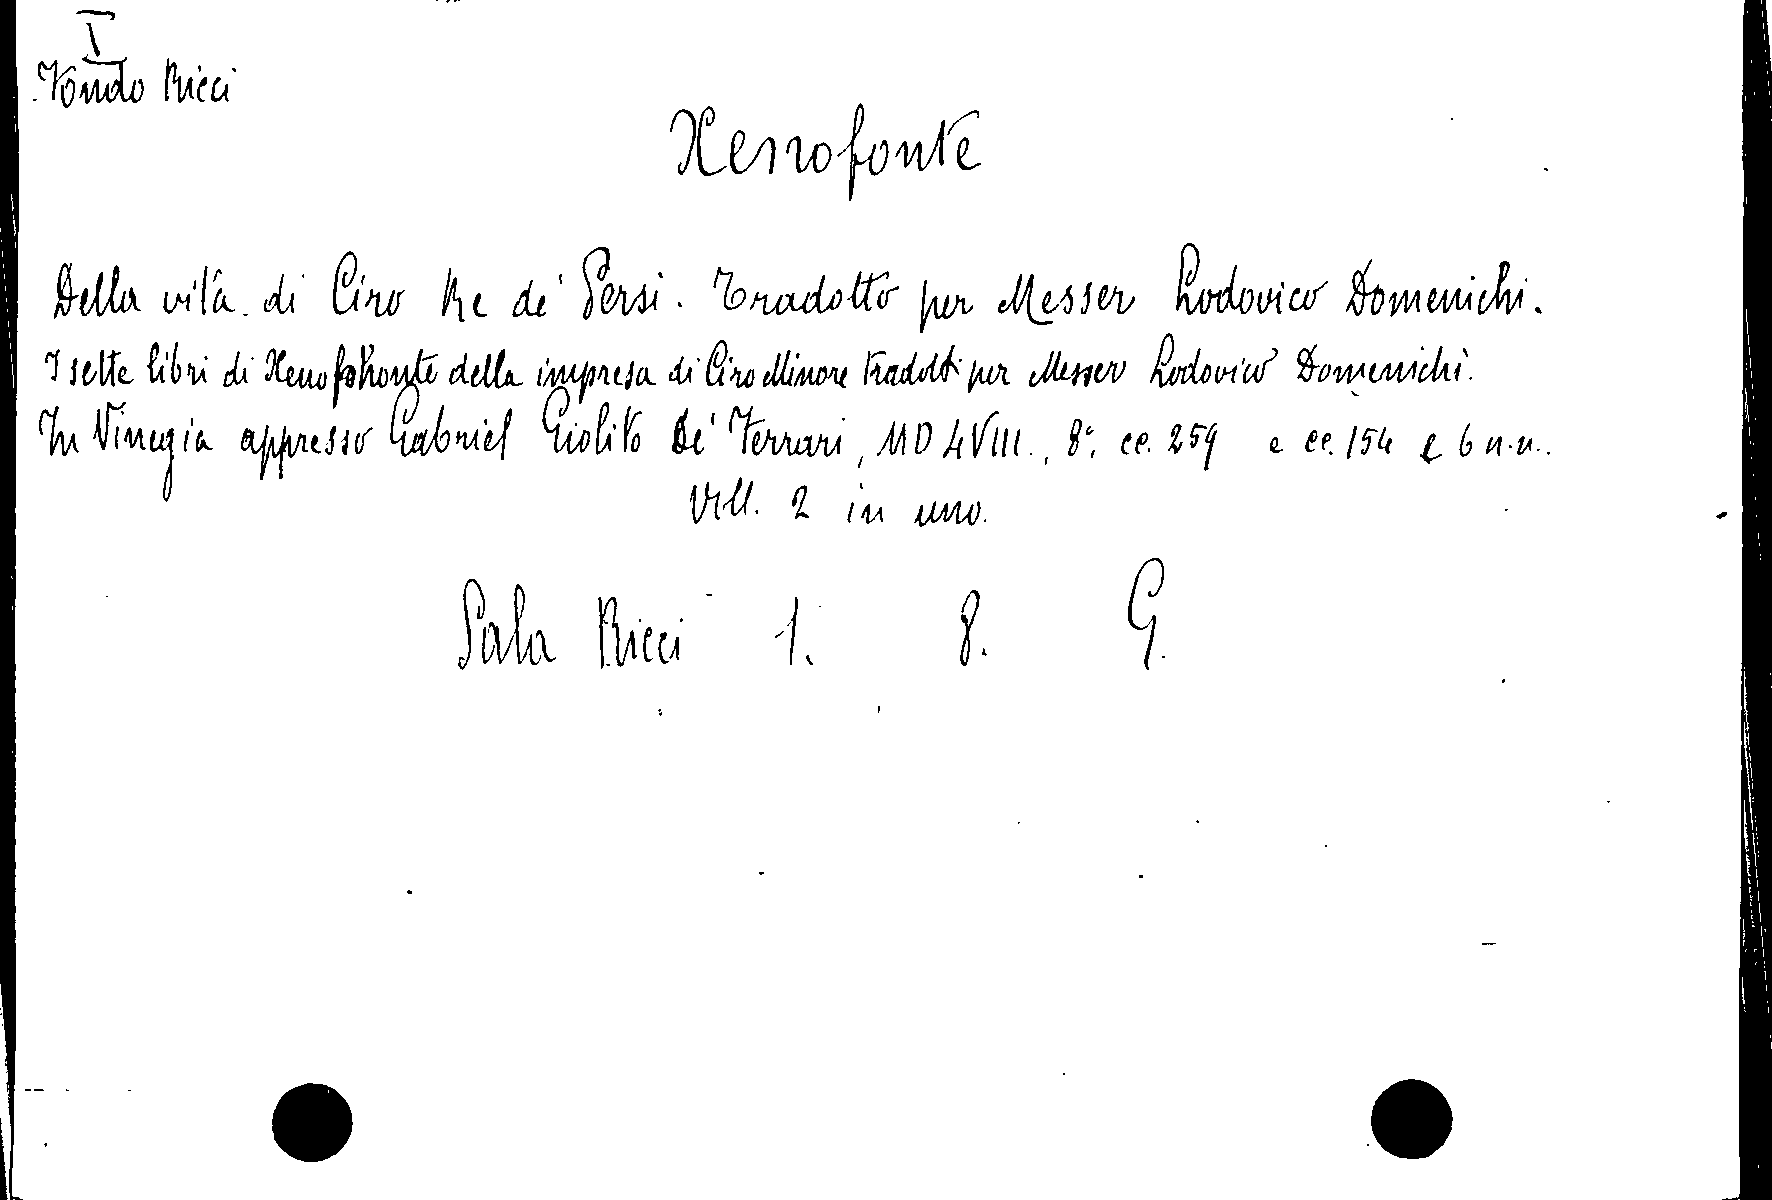 I
Fondo Ricci
Xenofonte
Della vita di Ciro Re de' Persi. Tradotto per Messer Lodovico Domenichi.
I sette libri di Xenophonte della impresa di Ciro Minore tradotti per Messer Lodovico Domenichi.
In Vinegia appresso Gabriel Giolito De' Ferrari, MD4VIII., 8°, cc. 259 e cc. 154 e 6 n.n..
Voll. 2 in uno.
Sala Ricci 1. 8. G.